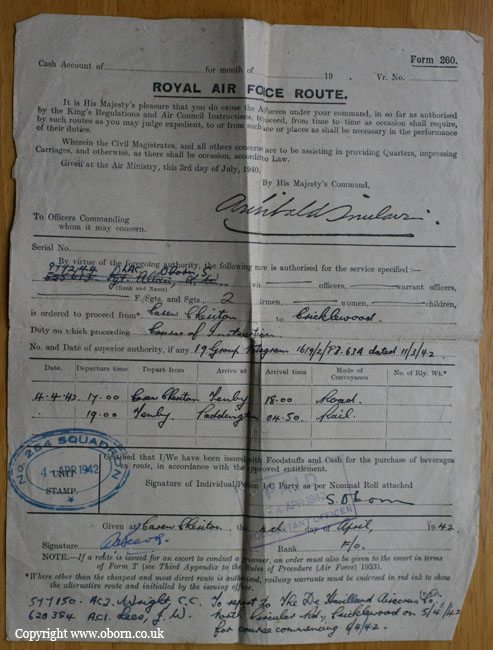 Form 260.
Cash Account of for month of 19 Vr. No.
ROYAL AIR FORCE ROUTE.
It is His Majesty's pleasure that you do cause the Air Forces under your command, in so far as authorised
by the King's Regulations and Air Council Instructions, to proceed, from time to time as occasion shall require,
by such routes as you may judge expedient, to or from such place or places as shall be necessary in the performance
of their duties.
Wherein the Civil Magistrates, and all others concerned are to be assisting in providing Quarters, impressing
Carriages, and otherwise, as there shall be occasion, according to Law.
Given at the Air Ministry, this 3rd day of July, 1940.
By His Majesty's Command,
Archibald Sinclair.
To Officers Commanding
whom it may concern.
Serial No.
977244 LAC. Oborn, S.
By virtue of the foregoing authority, the following move is authorised for the service specified :—
Sgt. with officers, warrant officers,
(Rank and Name)
F./Sgts., Sgts., 2 airmen, women, children,
is ordered to proceed from* Carew Cheriton to Cricklewood.
Duty on which proceeding Course of Instruction
No. and Date of superior authority, if any 19 Group Postagram 1619/2/P2.63A dated 11/3/42.
Date. Departure time Depart from Arrive at Arrival time Mode of Conveyance No. of Rly. Wt.*
4.4.42. 17.00 Carew Cheriton Tenby 18.00 Road.
" 19.00 Tenby. Paddington 04.50 Rail.
Certified that I/We have been issued with Foodstuffs and Cash for the purchase of beverages
en route, in accordance with the approved entitlement.
Signature of Individual/Person I/C Party as per Nominal Roll attached
S Oborn
No. 254 SQUADRON
4 APR 1942
UNIT
STAMP.
PAID
APR 1942
ACCOUNTANT OFFICER
Given at Carew Cheriton, this 4th day of April, 1942
Signature Rank F/O.
NOTE.—If a route is issued for an escort to conduct a prisoner, an order must also be given to the escort in terms
of Form T (see Third Appendix to the Rules of Procedure (Air Force) 1933).
*Where other than the cheapest and most direct route is authorised, railway warrants must be endorsed in red ink to show
the alternative route and initialled by the issuing officer.
577150. AC2. Wright, C.C. To report to The De Havilland Aircrew Co,
620354 AC1. Lees, J.W. North Circular Rd, Cricklewood on 5/4/42
for course commencing 6/4/42.
Copyright www.oborn.co.uk